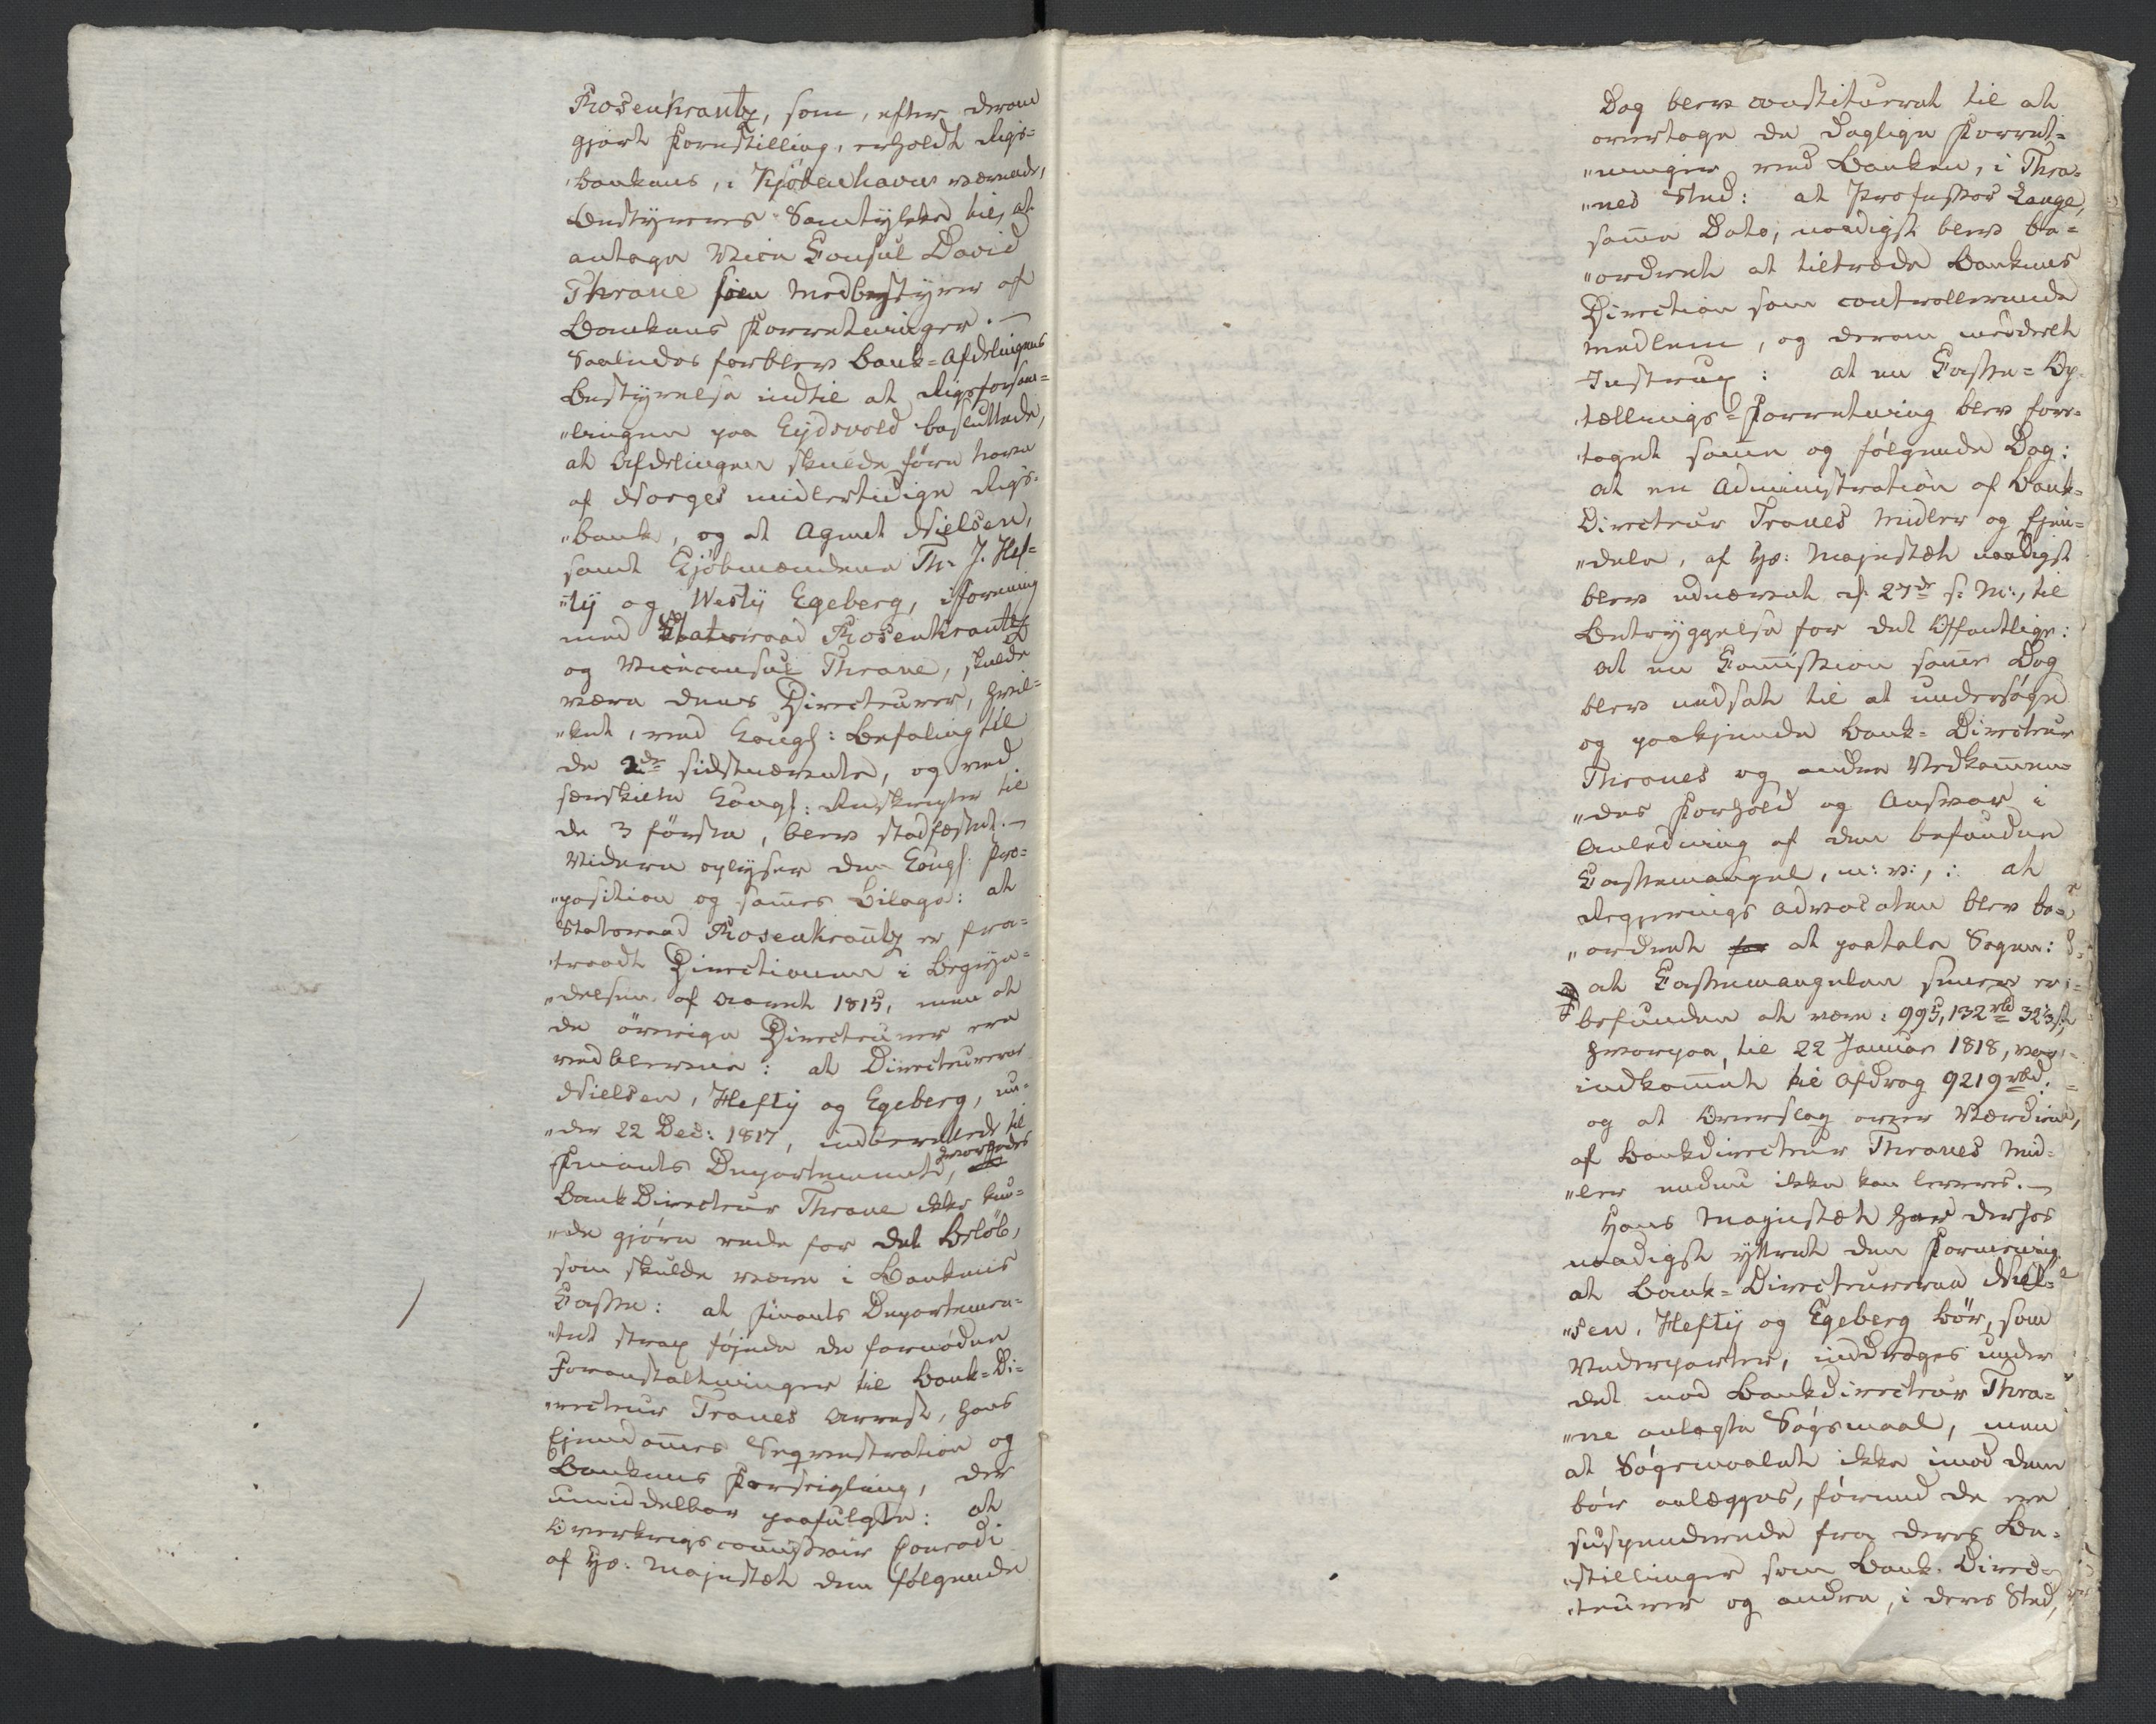 Rosenkrantz, som, efter derom
gjort Forestilling, erholdt Rigs-
„bankens, i Kjøbenhavn værende,
Bestyreres Samtykke til, at
antage Vice Consul David
Thrane som Medbestyrer af
Bankens Forretninger. —
Saaledes forblev Bank-Afdelingens
Bestyrelse indtil at Rigsforsam-
„lingen paa Eydsvold besluttede,
at Afdelingen skulde føre Navn
af Norges midlertidige Rigs-
„bank, og at Agent Nielsen,
samt Kjøbmændene Th: J. Hef-
„ty og Westy Egeberg, i forening
med Statsraad Rosenkrantz
og Viceconsul Thrane, skulde
være dens Directeurer, hvil-
„ket, ved Kongl: Befaling til
de 2de sidstnævnte, og ved
særskilte Kongl: Rescripter til
de 3 første, blev stadfæstet. —
Videre oplyser den Kongl: Pro-
„position og sammes Bilage: at
Statsraad Rosenkrantz er fra-
„traadt Directionen i Begyn-
„delsen af Aaret 1815, men at
de øvrige Directeurer ere
vedblevne: at Directeurerne
Nielsen, Hefty og Egeberg, un-
„der 22 Dec: 1817, indberettede til
Finants Departementet, hvorledes
Bank Directeur Thrane ikke kun-
„de gjøre rede for det Beløb,
som skulde være i Bankens
Casse: at Finants Departemen-
„tet strax føjede de fornødne
Foranstaltninger til Bank-Di-
„recteur Tranes Arrest, hans
Ejendommes Seqvestration og
Bankens Forsegling, der
umiddelbar paafulgte: at
Overkrigscommissair Conradi
af Hs: Majestæt den følgende
Dag blev constitueret til at
overtage de daglige Forret-
„ninger ved Banken, i Thra-
„nes Sted: at Professor Lange,
samme Dato, naadigst blev be-
„ordret at tiltræde Bankens
Direction som controllerende
Medlem, og derom meddeelt
Instrux: at en Casse-Op-
„tællings-Forretning blev fore-
„taget samme og følgende Dag:
at en Administration af Bank-
Directeur Tranes Midler og Ejen-
„dele, af Hs: Majestæt naadigst
blev udnævnt d: 27de s: M:, til
Betryggelse for det Offentlige:
at en Commission samme Dag
blev nedsat til at undersøge
og paakjende Bank-Directeur
Thranes og andre Vedkommen-
„des Forhold og Ansvar i
Anledning af den befundne
Cassemangel, m: v:,: at
Regjerings Advocaten blev be-
„ordret at paatale Sagen:
at Cassemangelen senere er
befunden at være: 995,132 rbd 32⅓ s,
hvorpaa, til 22 Januar 1818, var
indkommet til Afdrag 9219 rbd.
og at Overslag over Værdien,
af Bankdirecteur Thranes Mid-
„ler endnu ikke kan leveres. —
Hans Majestæt har derhos
naadigst yttret den Formening
at Bank-Directeurerne Niel-
„sen, Hefty og Egeberg bør, som
Vederparter, inddrages under
det mod Bankdirecteur Thra-
„ne anlagte Søgsmaal, men
at Søgsmaalet ikke imod dem
bør anlægges, førend de ere
suspenderede fra deres Be-
„stillinger som Bank-Direc-
„teurer og andre, i deres Sted,